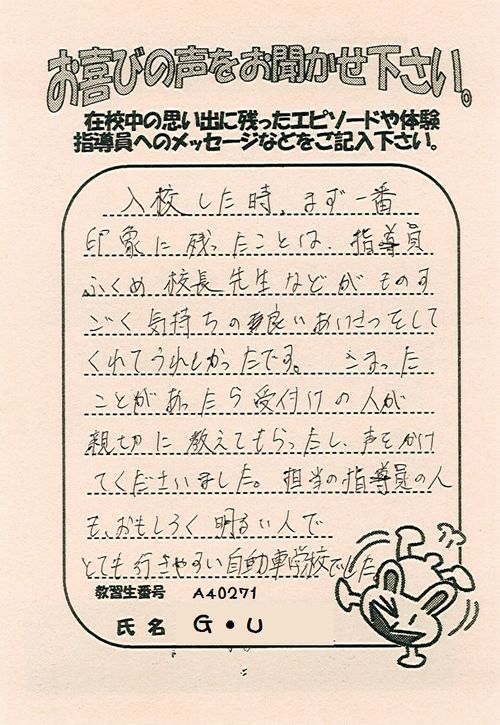 お喜びの声をお聞かせ下さい。
在校中の思い出に残ったエピソードや体験
指導員へのメッセージなどをご記入下さい。
入校した時、まず一番
印象に残ったことは、指導員
ふくめ校長先生などがものす
ごく気持ちの良いあいさつをして
くれてうれしかったです。 こまった
ことがあったら受付けの人が
親切に教えてもらったし、声をかけ
てくださいました。担当の指導員の人
も、おもしろく明るい人で
とても行きやすい自動車学校でした。
教習生番号 A40271
氏名 G・U